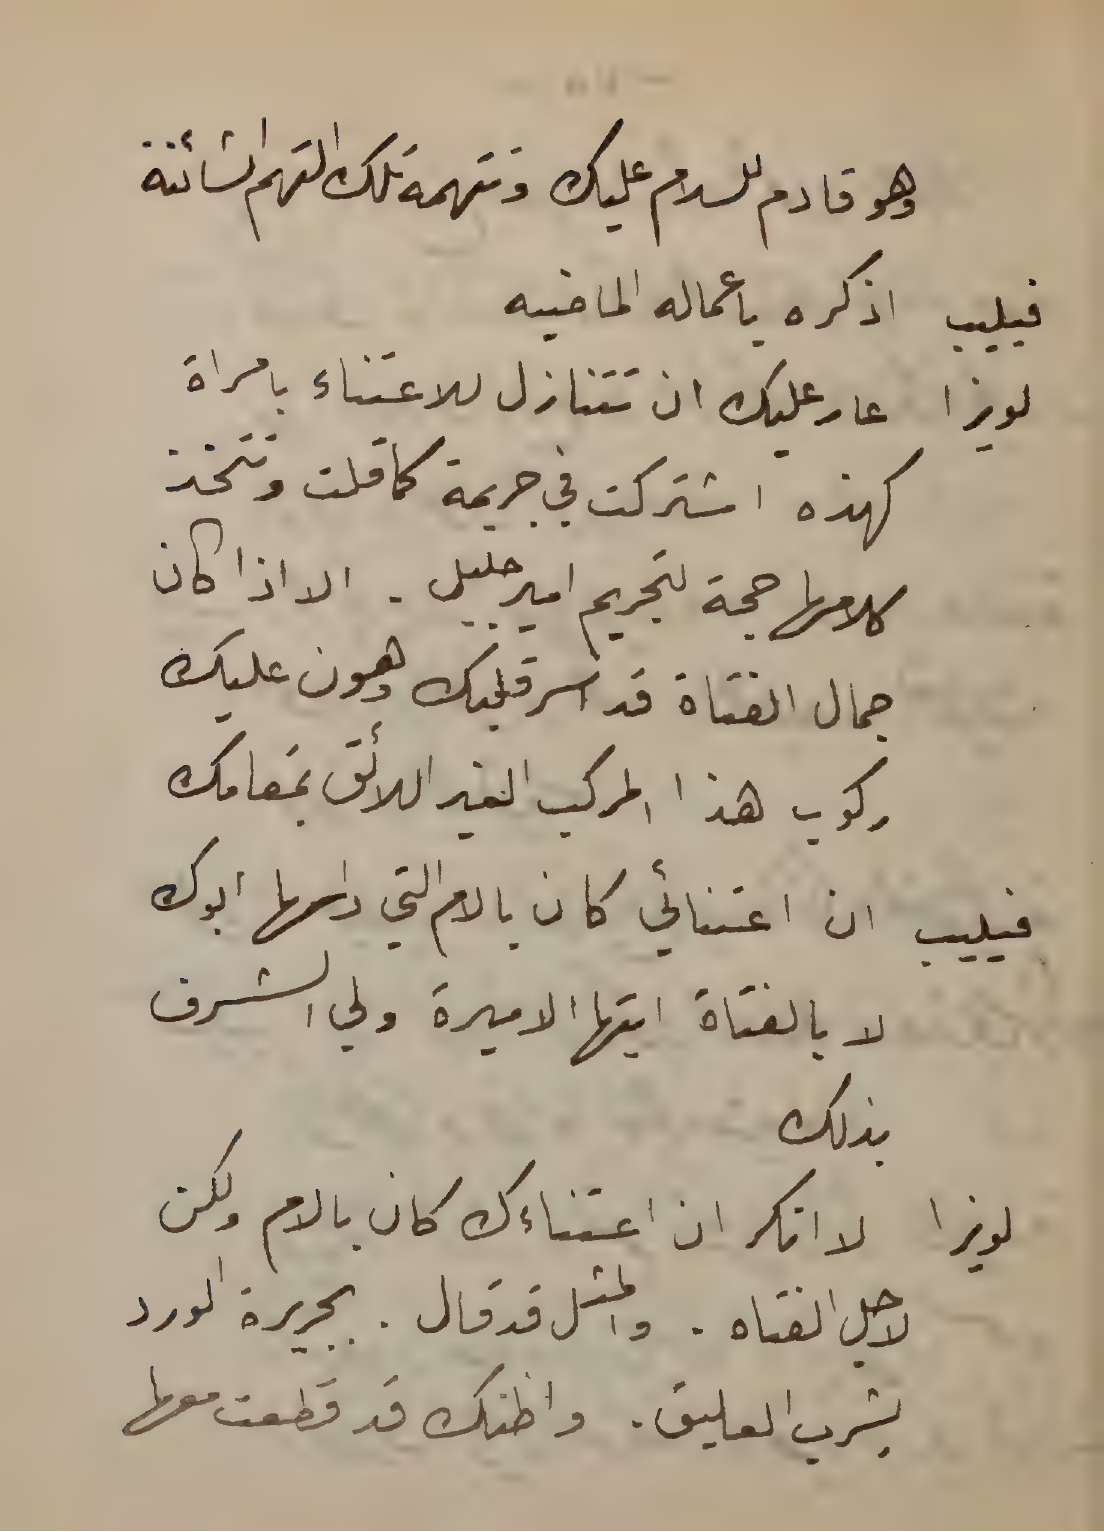 وهو قادم للسلام عليك وتتهمه تلك التهم الشائنة
فيليب اذكره باعماله الماضيه
لويزا عار عليك ان تتنازل للاعتناء بامراة
كهذه اشتركت في جريمة كما قلت وتتخذ
كلامها حجة لتجريم امير جليل . الا اذا كان
جمال الفتاة قد أسر قلبك وهون عليك
ركوب هذا المركب الغير اللائق بمقامك
فيليب ان اعتنائي كان بالام التي داسها ابوك
لا بالفتاة ايتها الاميرة ولي الشرف
بذلك
لويزا لا انكر ان اعتناءك كان بالام ولكن
لاجل الفتاه . والمثل قد قال . بجريرة الورد
يشرب العليق . واظنك قد قطعت معها